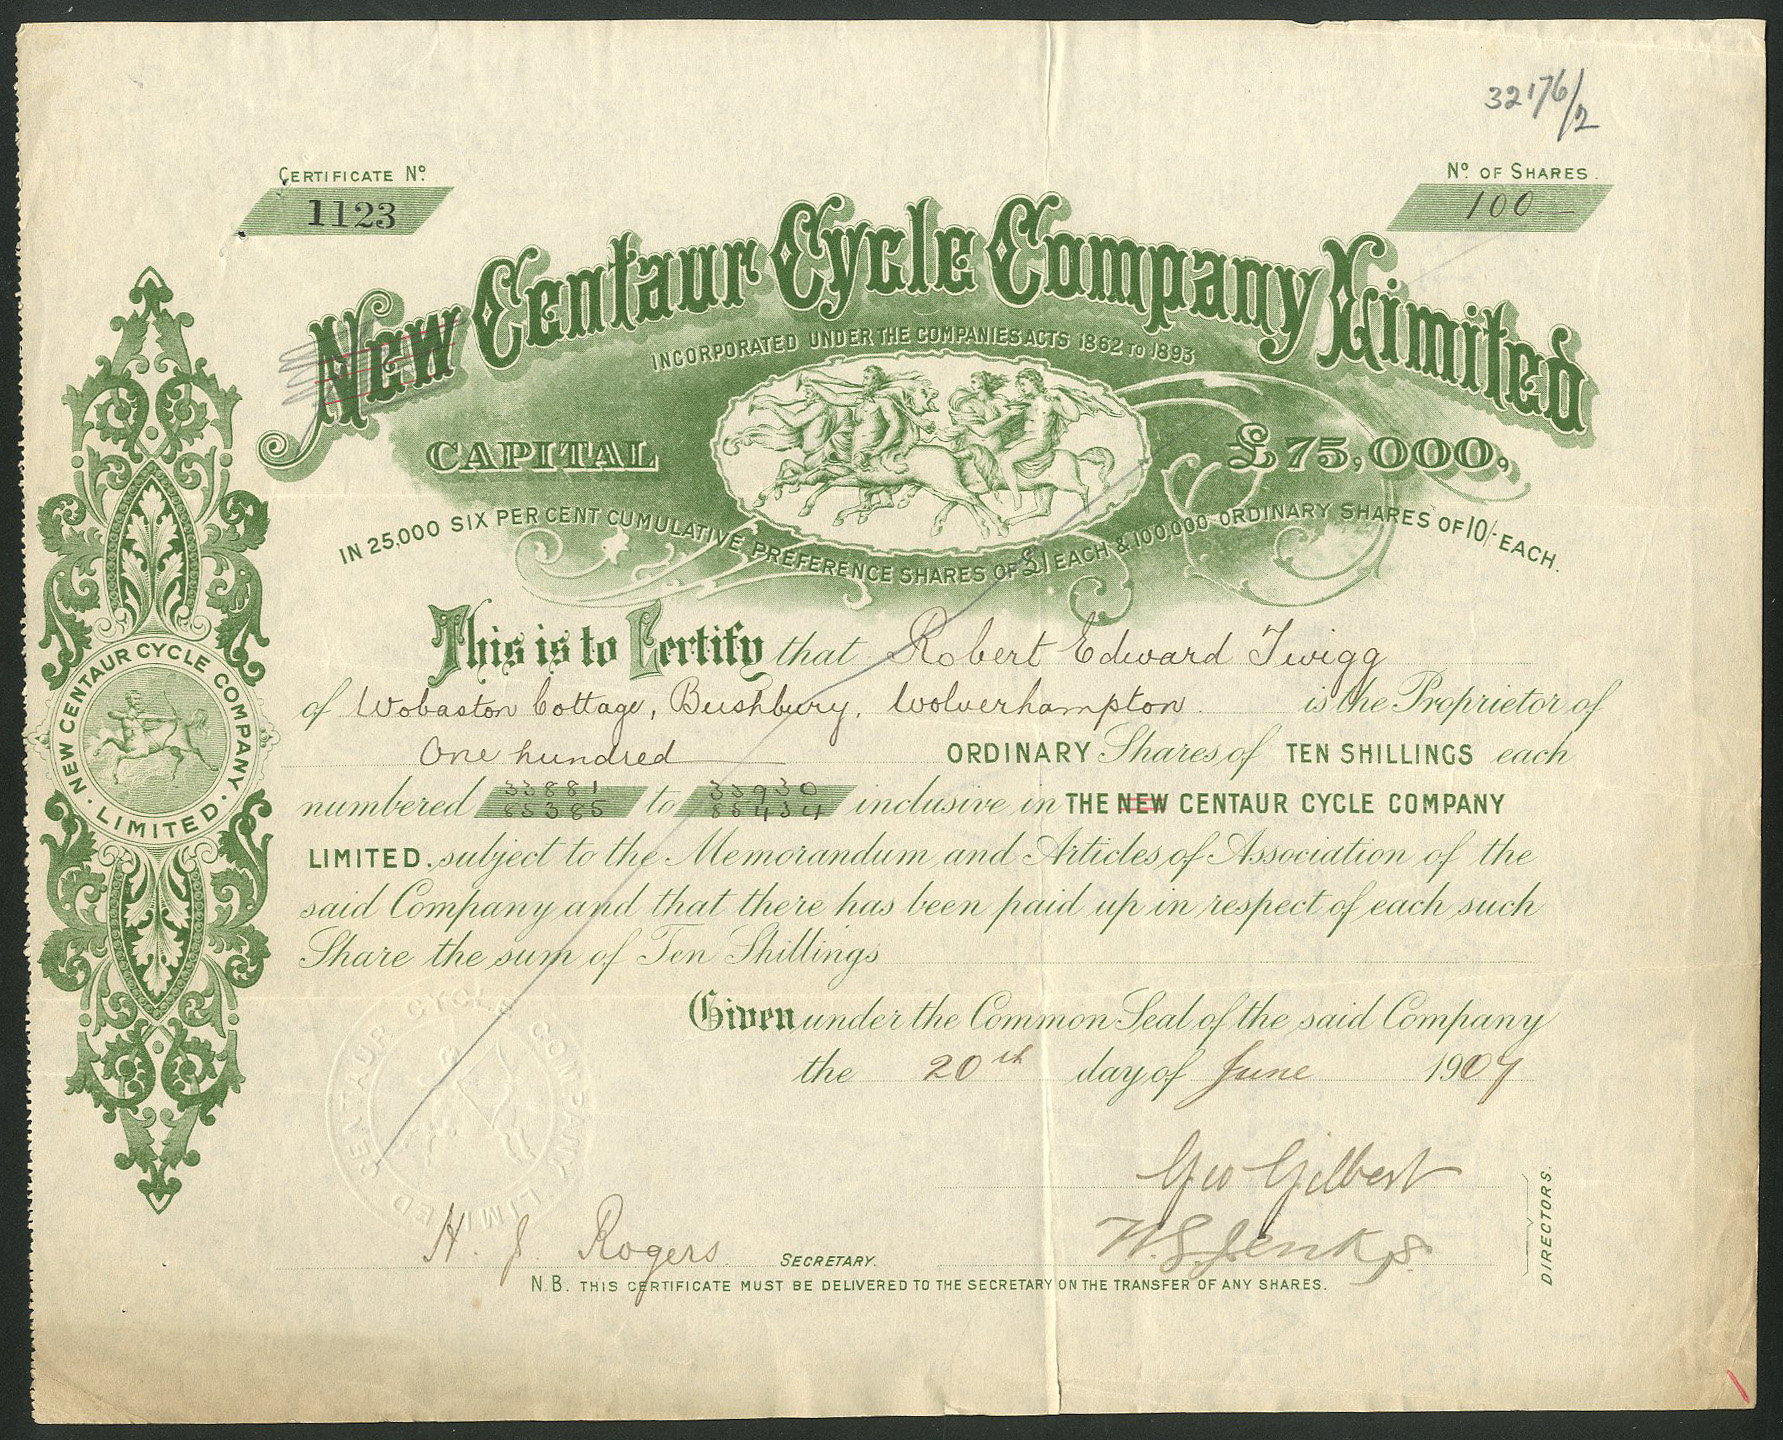 32176/2
CERTIFICATE Nº
1123
Nº OF SHARES.
100
New Centaur Cycle Company Limited
INCORPORATED UNDER THE COMPANIES ACTS 1862 TO 1893
CAPITAL £75,000,
IN 25,000 SIX PER CENT CUMULATIVE PREFERENCE SHARES OF £1 EACH & 100,000 ORDINARY SHARES OF 10/- EACH.
This is to Certify that Robert Edward Twigg
of Wobaston Cottage, Bushbury, Wolverhampton. is the Proprietor of
One hundred ORDINARY Shares of TEN SHILLINGS each
numbered 33881 to 33930
85385 85434 inclusive in THE NEW CENTAUR CYCLE COMPANY
LIMITED. subject to the Memorandum and Articles of Association of the
said Company and that there has been paid up in respect of each such
Share the sum of Ten Shillings
Given under the Common Seal of the said Company
the 20th day of June 1907
Geo Gilbert
W. S. Jenks
DIRECTORS.
H. J. Rogers SECRETARY.
N.B. THIS CERTIFICATE MUST BE DELIVERED TO THE SECRETARY ON THE TRANSFER OF ANY SHARES.
NEW CENTAUR CYCLE COMPANY · LIMITED ·
CENTAUR CYCLE COMPANY LIMITED